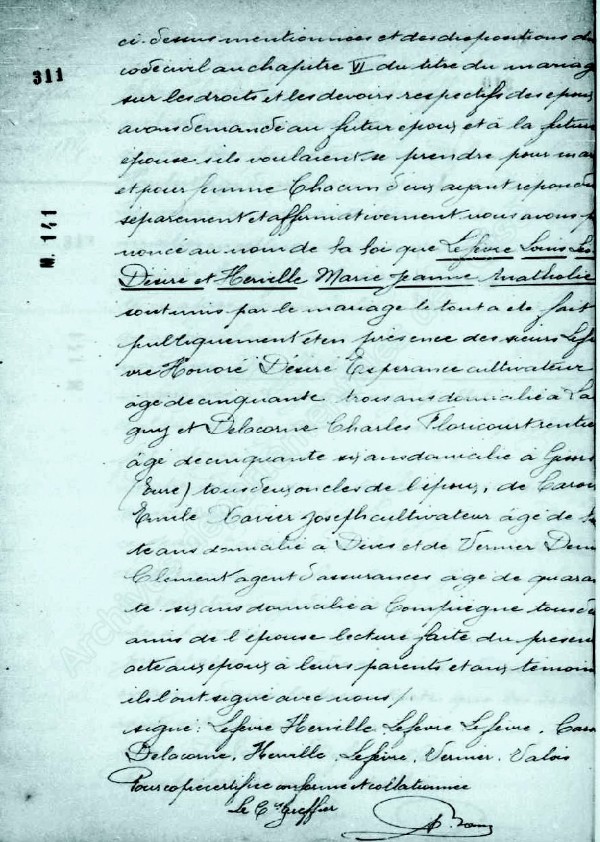 311
M. 141
ci-dessus mentionnées et des dispositions du
code civil au chapitre VI du titre du mariag
sur les droits et les devoirs respectifs des epou
avons demandé au futur epoux et à la future
epouse s'ils voulaient se prendre pour mar
et pour femme Chacun d'eux ayant repondu
séparément et affirmativement nous avons p
noncé au nom de la loi que Lefevre Louis
Désiré et Herville Marie Jeanne Mathilde
sont unis par le mariage le tout a ete fait
publiquement et en présence des sieurs Lefe
vre Honoré Désiré Espérance cultivateur
âgé de cinquante trois ans domicilié à La
guy et Delacorne Charles Floricourt rentie
âgé de cinquante six ans domicilié à
(Eure) tous deux oncles de l'époux, de Caron
Emile Xavier Joseph cultivateur âgé de
te ans domicilié à Dives et de Vernier
Clément agent d'assurances âgé de quaran
te six ans domicilié à Compiègne tous de
amis de l'épouse lecture faite du présen
acte aux epoux à leurs parents et aux témoin
ils l'ont signé avec nous
signé: Lefevre Herville Lefevre Lefevre, Caro
Delacorne, Herville, Lefèvre, Vernier, Valois
Pour copie certifiée conforme et collationnée
Le Cis greffier
Archives